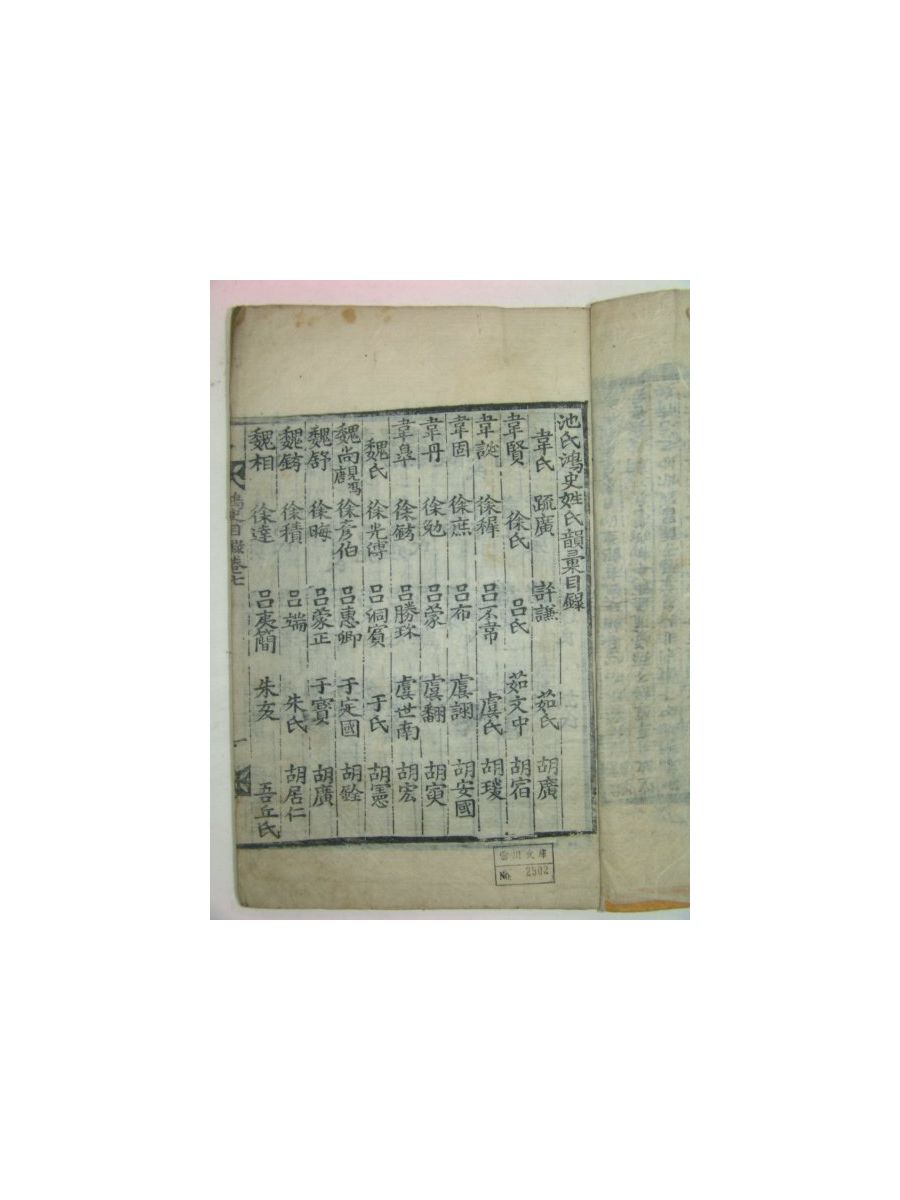 池氏鴻史姓氏韻彙目錄
韋氏 疏廣 許謙 茹氏 胡廣
韋賢 徐氏 呂氏 茹文中 胡宿
韋誕 徐穉 呂不韋 虞氏 胡瑗
韋固 徐庶 呂布 虞詡 胡安國
韋丹 徐勉 呂蒙 虞翻 胡寅
韋臯 徐鉉 呂勝珎 虞世南 胡宏
魏氏 徐光溥 呂洞賓 于氏 胡憲
魏尚見馮唐 徐彦伯 呂惠卿 于定國 胡銓
魏舒 徐晦 呂蒙正 于寶 胡廣
魏 徐積 呂端 朱氏 胡居仁
魏相 徐達 呂夷簡 朱亥 吾丘氏
鴻史目錄卷七 一
文庫
No. 2502